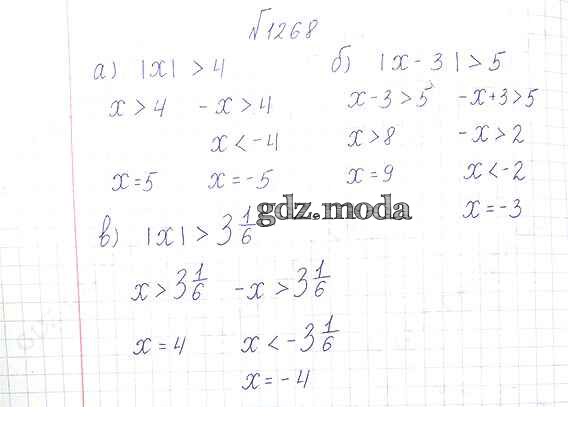 №1268
а) |x| > 4
x > 4 -x > 4
x < -4
x = 5 x = -5
б) |x - 3| > 5
x - 3 > 5 -x + 3 > 5
x > 8 -x > 2
x = 9 x < -2
x = -3
gdz.moda
в) |x| > 3 1/6
x > 3 1/6 -x > 3 1/6
x = 4 x < -3 1/6
x = -4